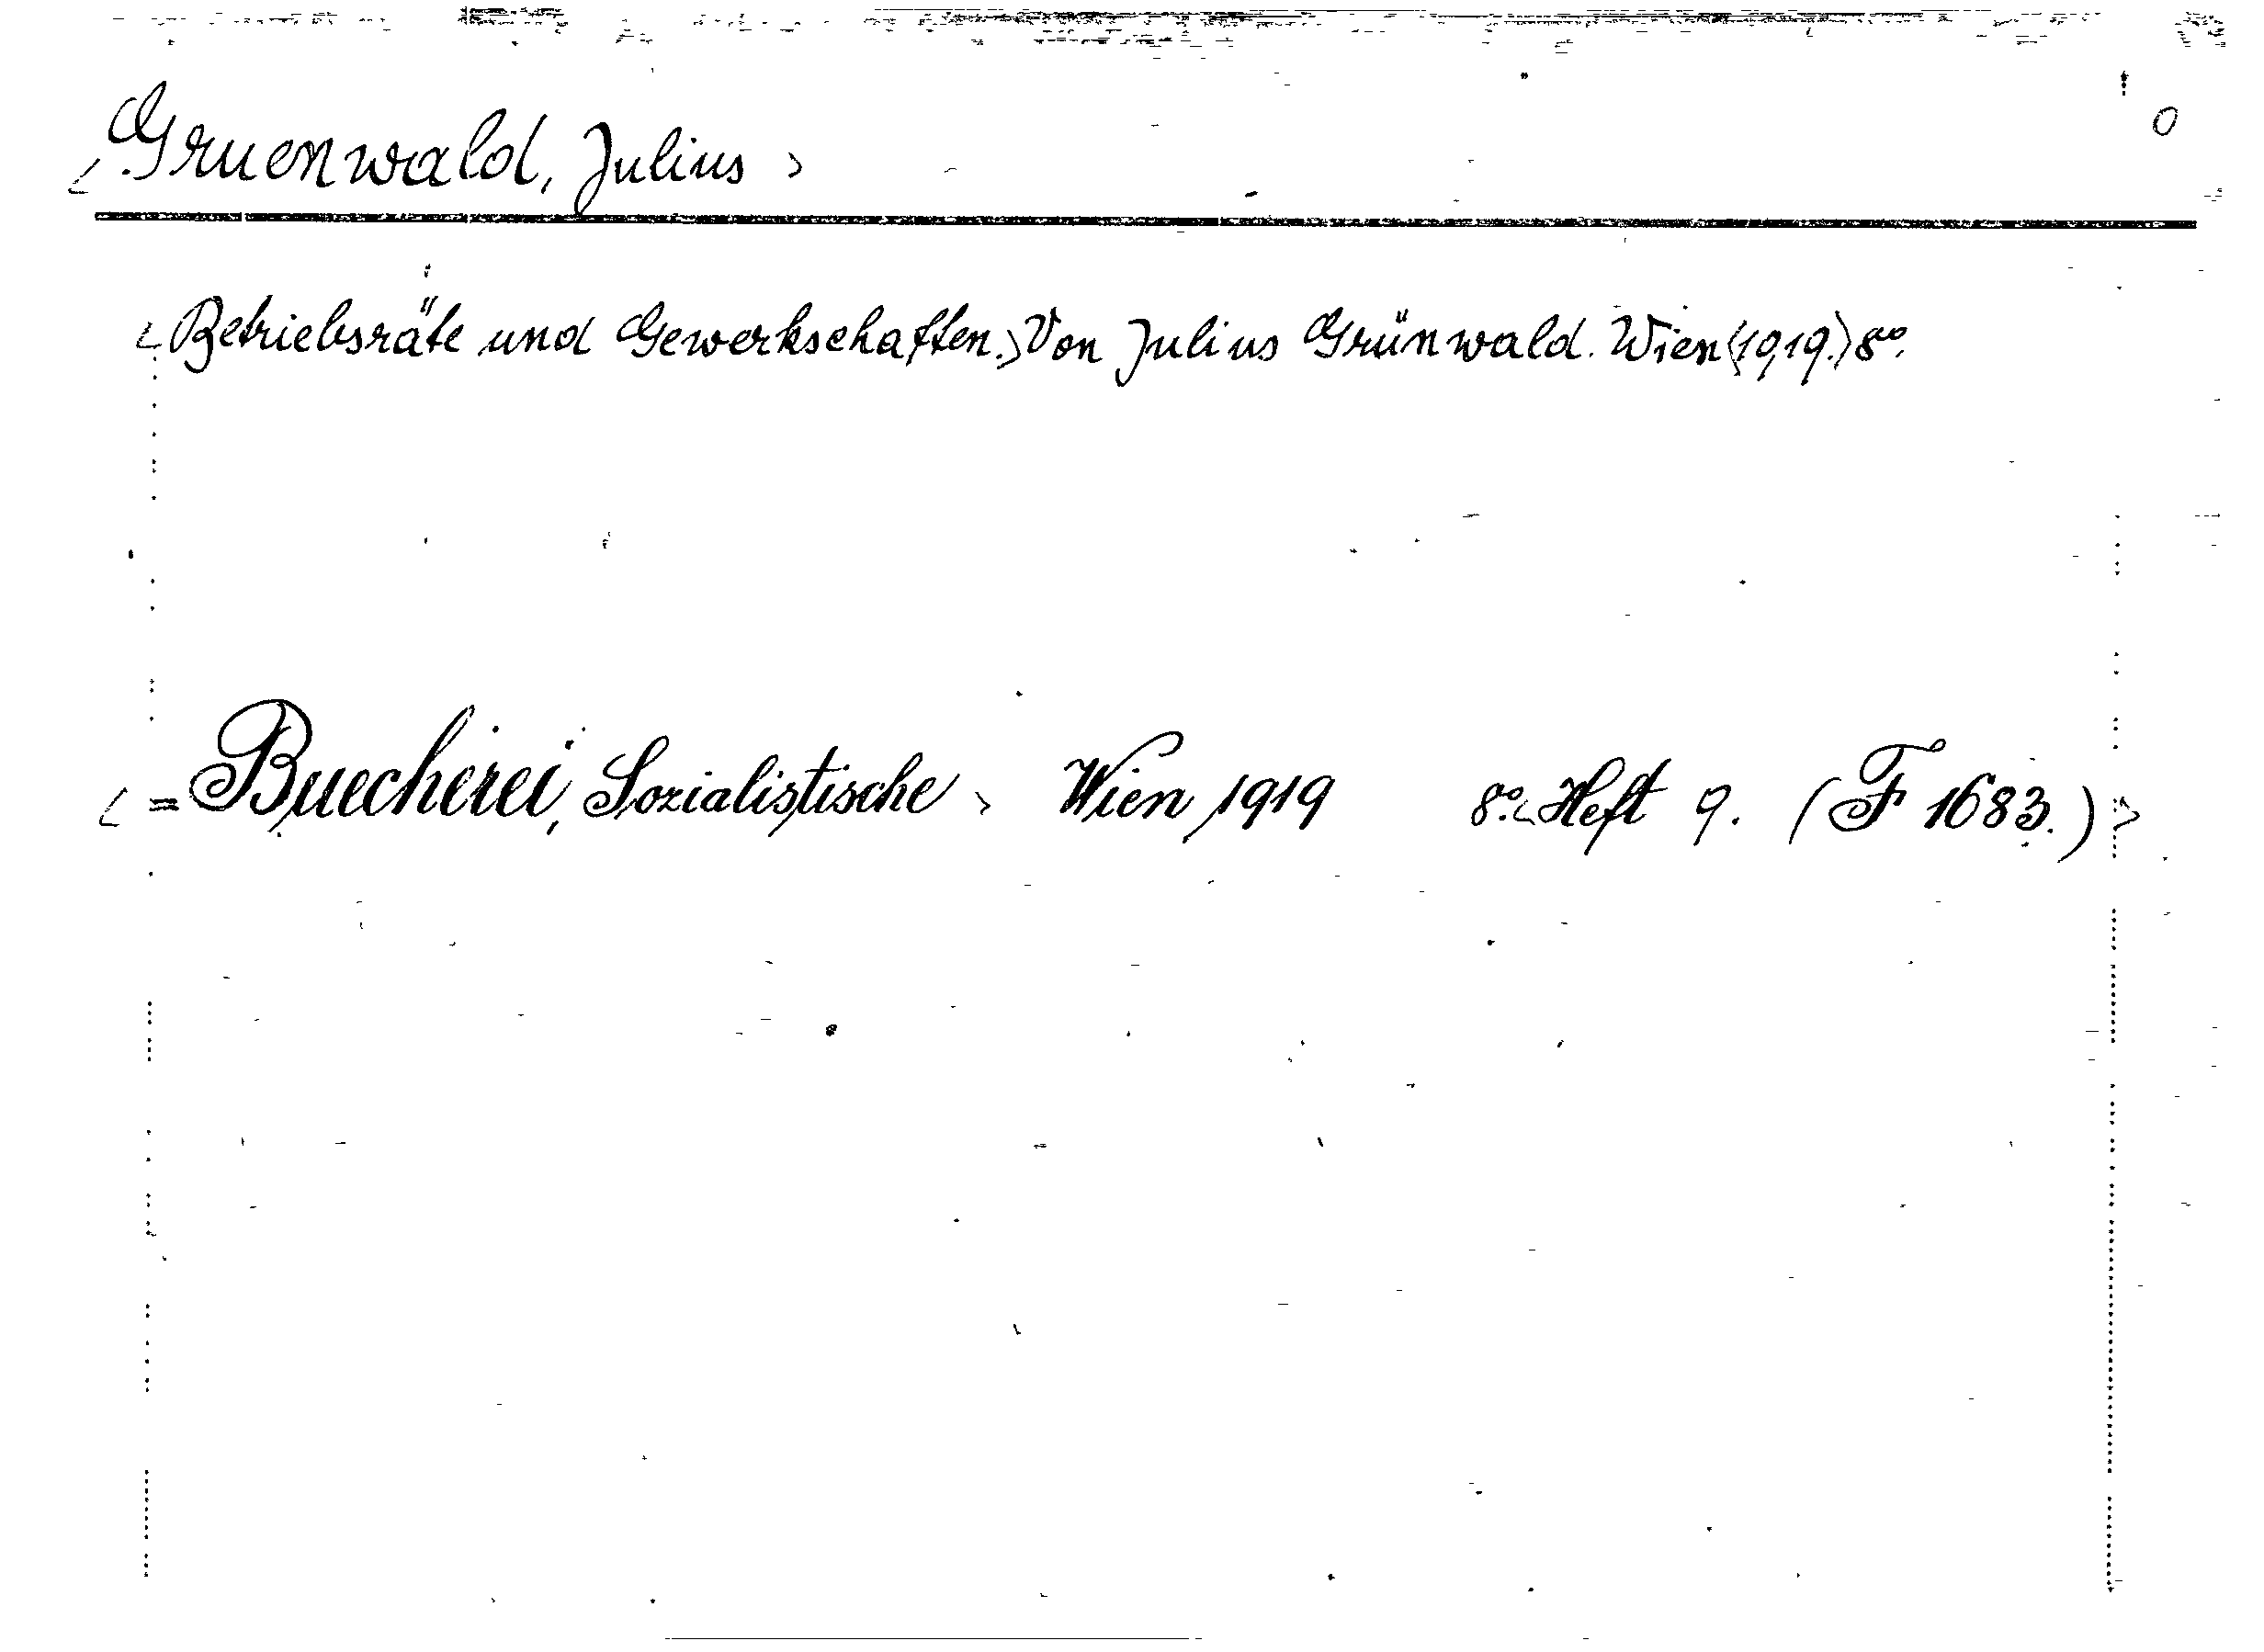 <Gruenwald, Julius> O
<Betriebsräte und Gewerkschaften.> Von Julius Grünwald. Wien <1919.> 8°.
<= Buecherei, Sozialistische> Wien, 1919 8°. <Heft 9. (F 1683.)>